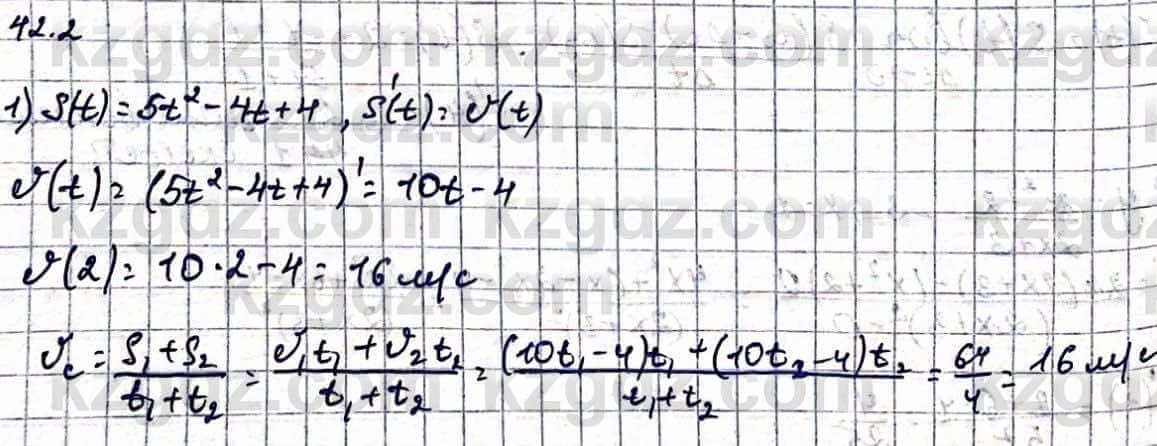 42.2
1) S(t) = 5t² - 4t + 4, S'(t) = υ(t)
υ(t) = (5t² - 4t + 4)' = 10t - 4
υ(2) = 10 · 2 - 4 = 16 м/с
υc = (S₁ + S₂)/(t₁ + t₂) = (υ₁t₁ + υ₂t₂)/(t₁ + t₂) = ((10t₁ - 4)t₁ + (10t₂ - 4)t₂)/(t₁ + t₂) = 64/4 = 16 м/с
kzgdz.com